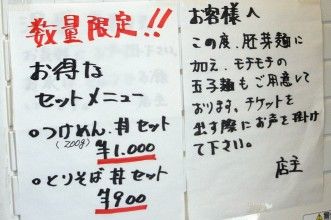 数量限定!!
お得な
セットメニュー
○つけめん、丼セット
(200g)
¥1.000
○とりそば丼セット
¥900
お客様へ
この度、胚芽麺に
加え、モチモチの
玉子麺もご用意して
おります。チケットを
出す際にお声を掛け
て下さい。
店主